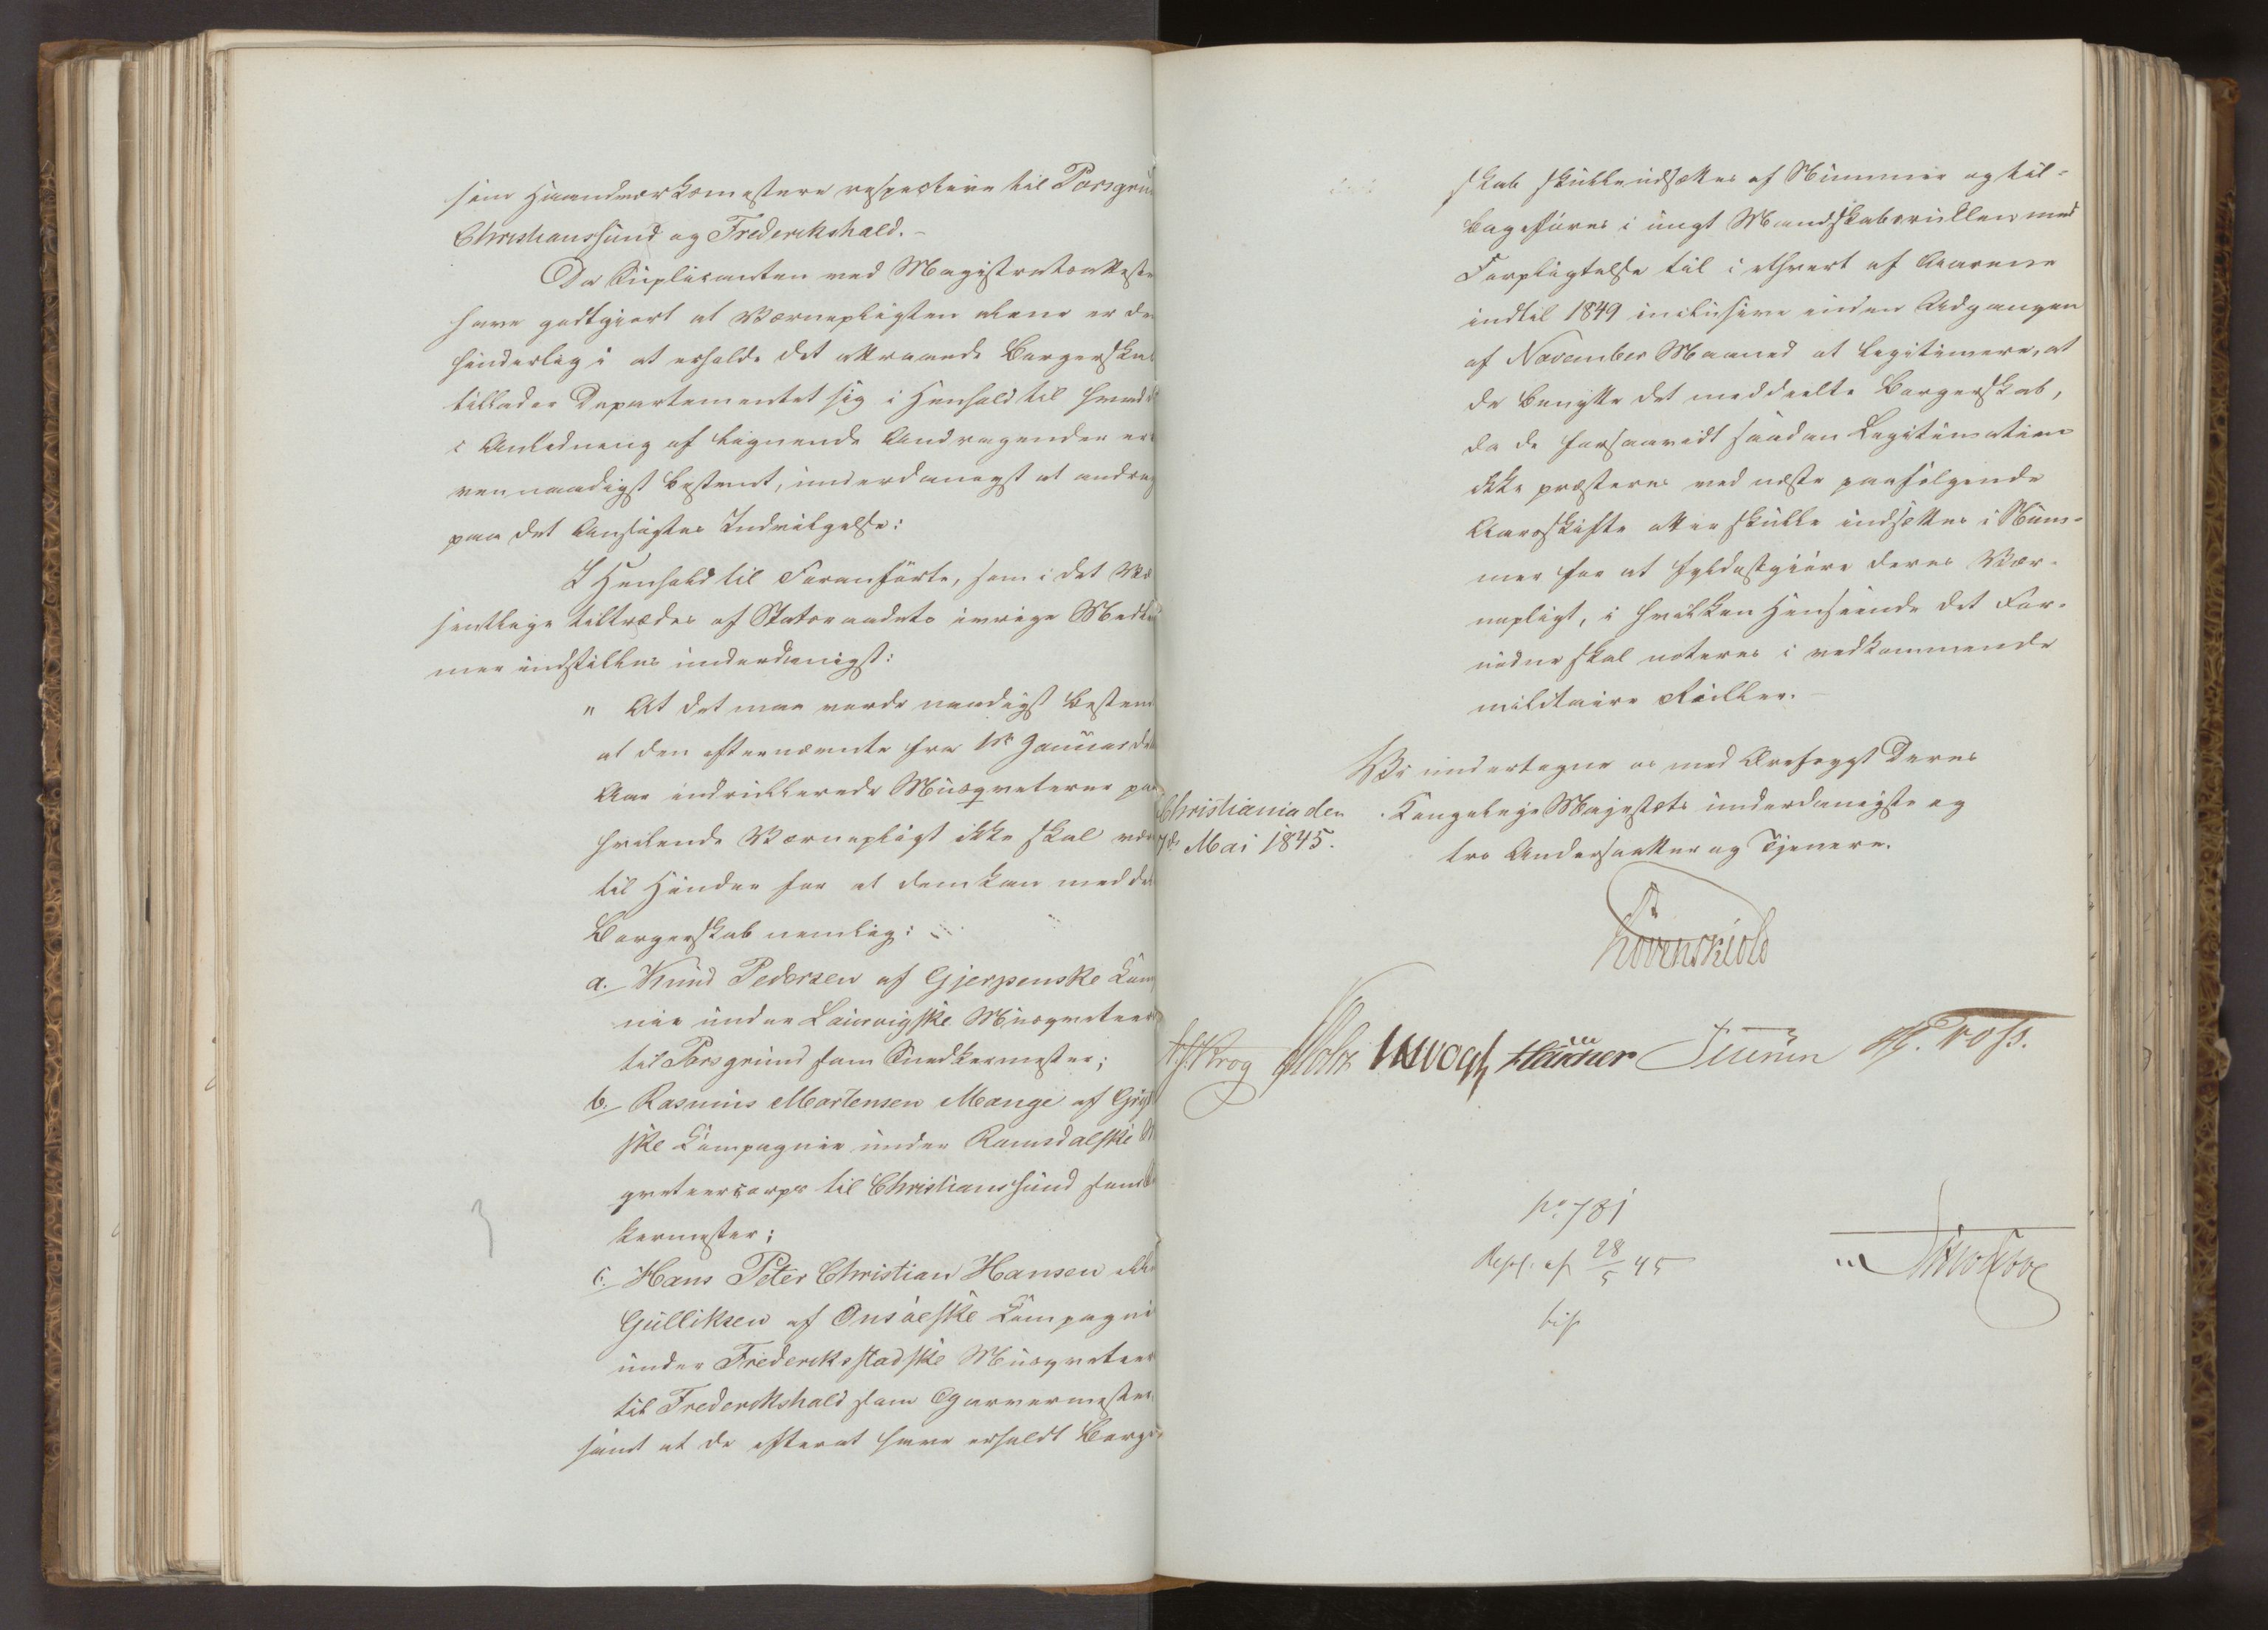 som Haandværksmestere respective til Porsgrun
Christianssund og Frederikshald.-
Da Suplicanten ved Magistratsattester
have godtgjort at Værnepligten alene er dem
hinderlig i at erholde det attraaede Borgerskab
tillader Departementet sig i Henhold til hvad
i Anledning af lignende Andragender er
vennaadigst bestemt, underdanigst at andrage
paa det Ansøgtes Indvilgelse:
I Henhold til Foranførte, som i det Væ
sentlige tiltrædes af Statsraadets øvrige Medlem
mer indstilles underdanigst:
" At det maa vorde naadigst bestemt
at den efternævnte fra 1ste Januar dette
Aar indrullerede Musqveterer paa
hvilende Værnepligt ikke skal være
til Hinder for at dem kan meddeles
Borgerskab nemlig:
a. Knud Pedersen af Gjerpenske Com
nie under Laurvigske Musqveteer
til Porsgrund som Snedkermester;
b. Rasmus Mortensen Mange af Gryt
ske Compagnie under Romsdalske M
qveteercorps til Christianssund som
kermester;
c. Hans Peter Christian Hansen eller
Gulliksen af Onsøeske Compagni
under Frederiksstadske Musqveteer
til Frederikshald som Garvermester,
samt at de efterat have erholdt Borger
skab skulle udsættes af Nummer og til=
bageføres i ungt Mandskabsrullen med
Forpligtelse til i ethvert af Aarene
indtil 1849 inclusive inden Udgangen
af November Maaned at legitimere, at
de benytte det meddeelte Borgerskab,
da de forsaavidt saadan Legitimation
ikke præsteres ved næste paafølgende
Aarsskifte atter skulle indsættes i Num=
mer for at fyldestgjøre deres Vær=
nepligt, i hvilken Henseende det For=
nødne skal noteres i vedkommende
militaire Ruller.-
Vi undertegne os med Ærefrygt Deres
Kongelige Majestæts underdanigste og
tro Undersaatter og Tjenere.
Christiania den
7de Mai 1845.
Løvenskiold
Krog Holst Vogh
No. 781
Resol. af 28/5 45